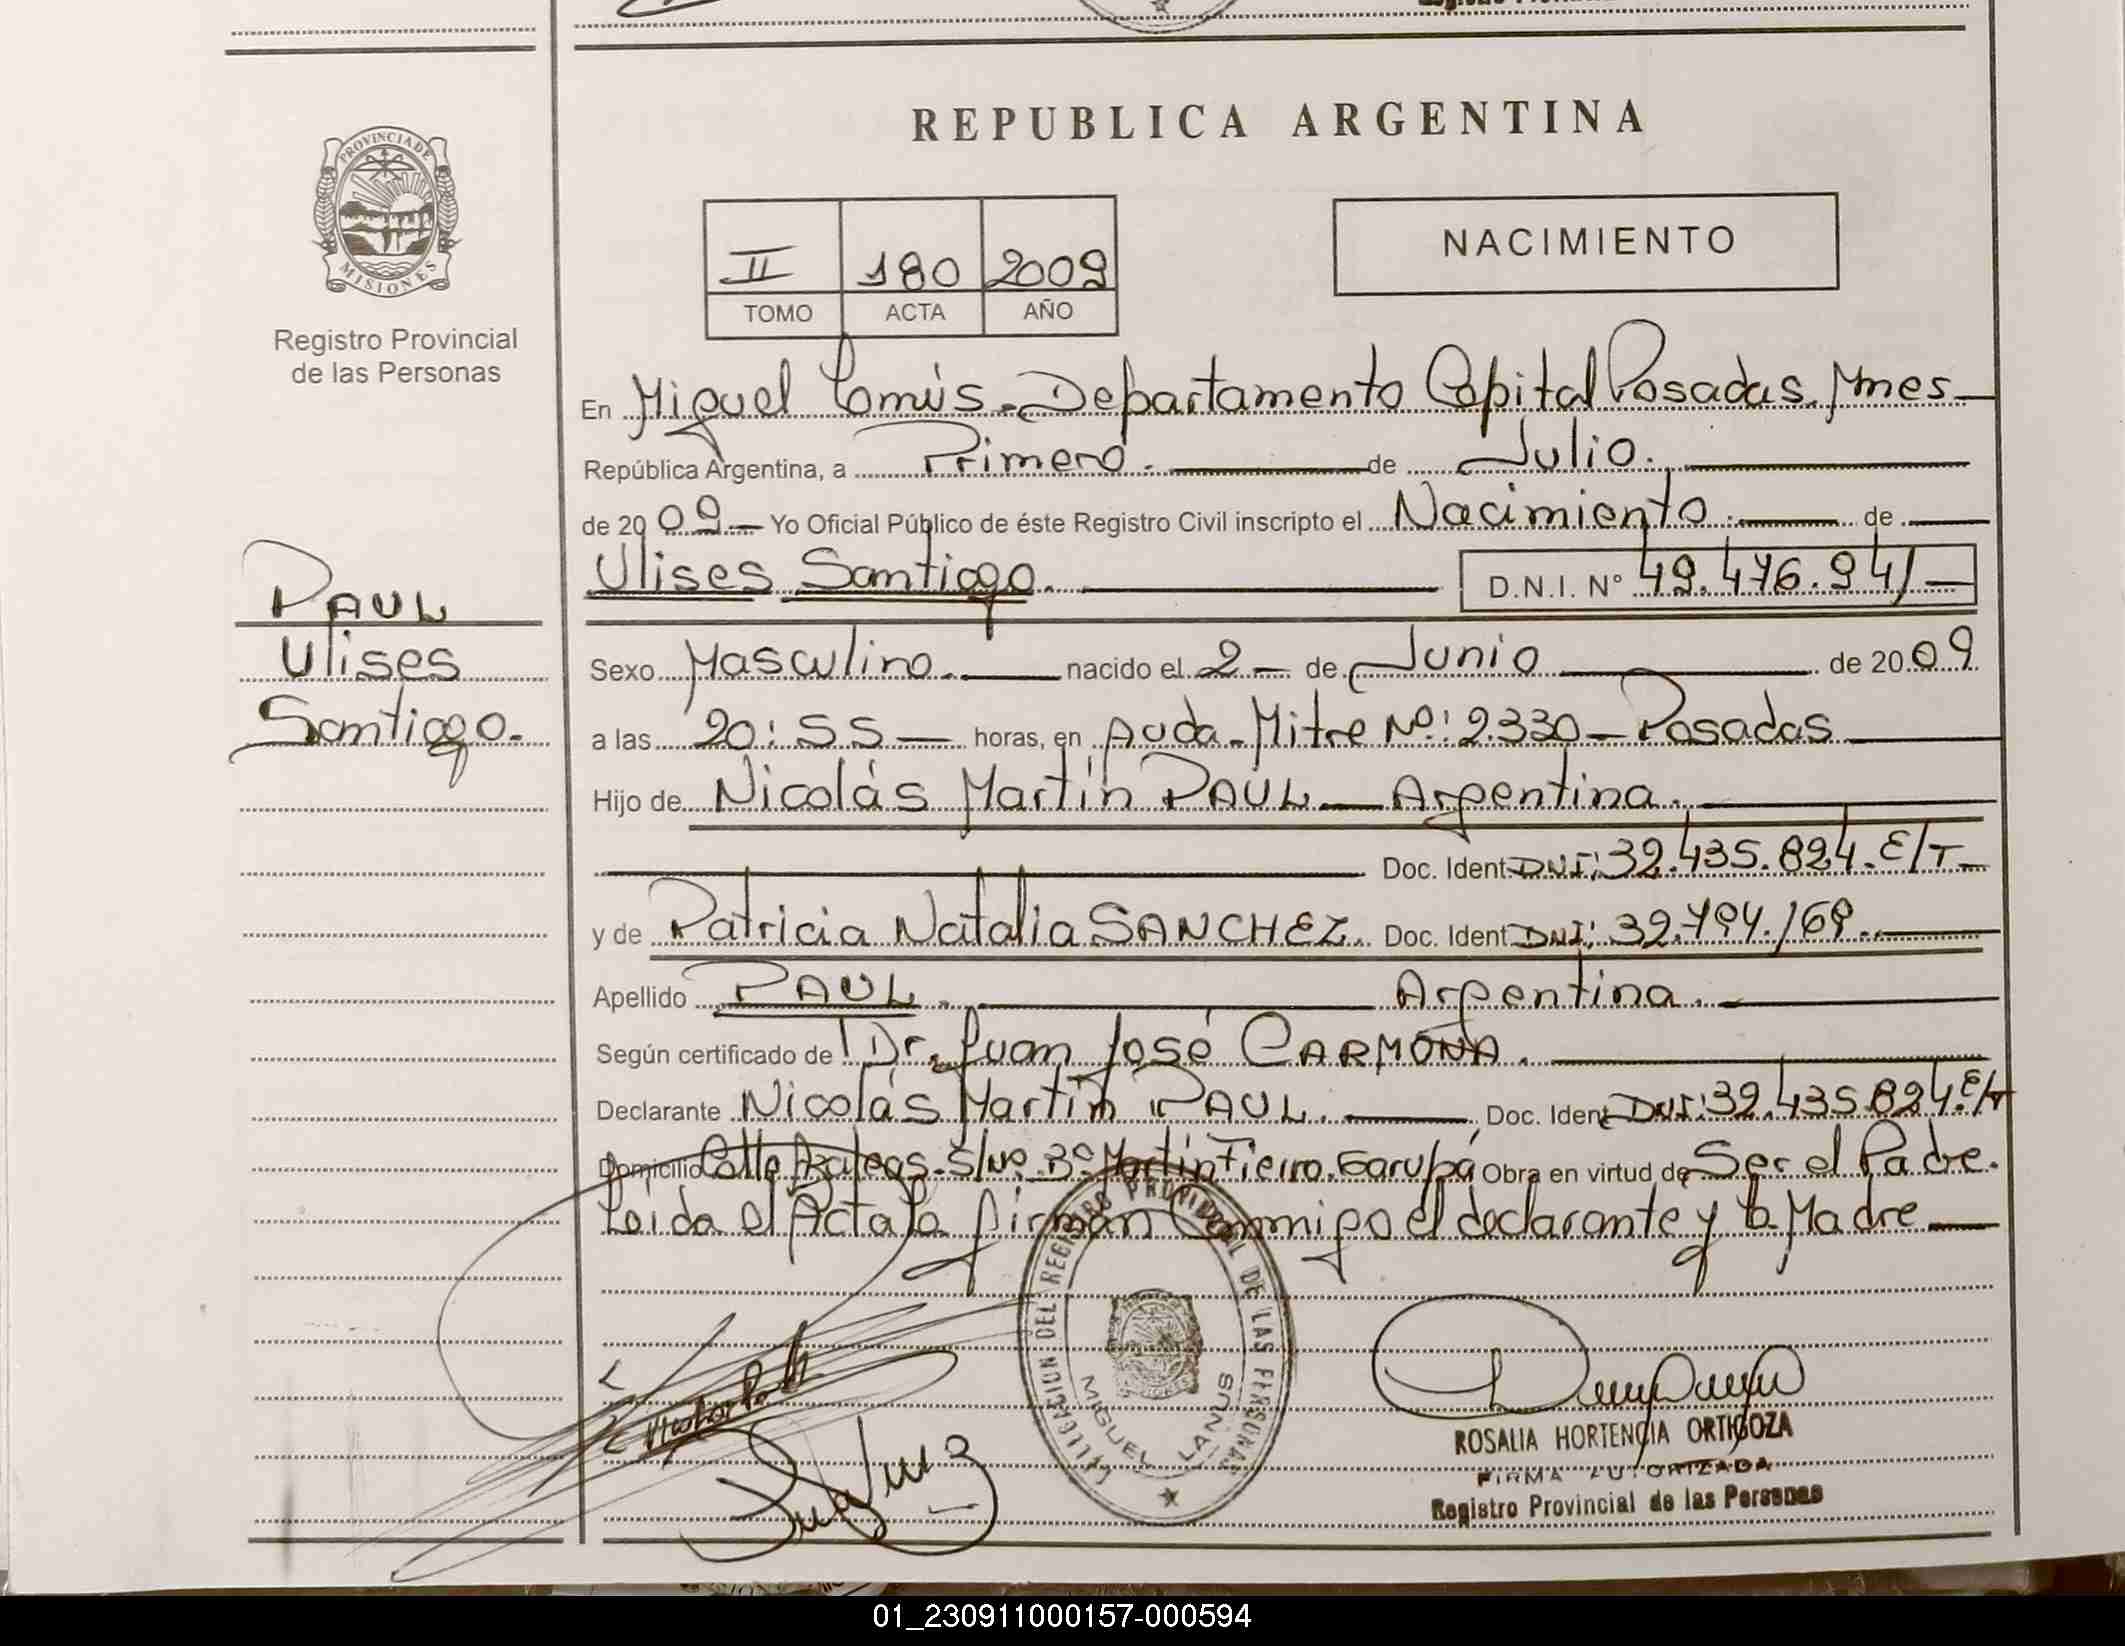 REPUBLICA ARGENTINA
PROVINCIA DE
MISIONES
Registro Provincial
de las Personas
NACIMIENTO
II 180 2009
TOMO ACTA AÑO
En Miguel Lanús - Departamento Capital Posadas. Mnes
República Argentina, a Primero. de Julio.
de 2009 Yo Oficial Público de éste Registro Civil inscripto el Nacimiento. de
Ulises Santiago. D.N.I. Nº 49.476.941
PAUL
Ulises
Santiago.
Sexo Masculino. nacido el 2 de Junio de 2009
a las 20:55 horas, en Avda. Mitre Nº: 2.330 - Posadas
Hijo de Nicolás Martín PAUL - Argentina.
Doc. Ident DNI: 32.435.824. E/T
y de Patricia Natalia SANCHEZ. Doc. Ident DNI:
Apellido PAUL. Argentina.
Según certificado de Dr. Juan José CARMONA.
Declarante Nicolás Martín PAUL. Doc. Ident DNI: 32.435.824. E/T
Domicilio Calle Aztecas. S/Nº. Bº Martín Fierro. Garupá Obra en virtud de Ser el Padre.
Leida el Acta la firman Conmigo el declarante y la Madre
DELEGACION DEL REGISTRO PROVINCIAL DE LAS PERSONAS
MIGUEL LANUS
ROSALIA HORTENCIA ORTIGOZA
FIRMA AUTORIZADA
Registro Provincial de las Personas
01_230911000157-000594